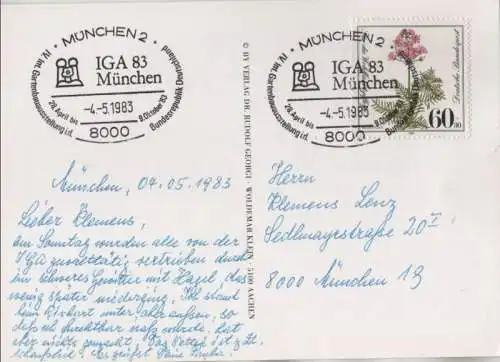 MÜNCHEN 2
IV. Int. Gartenbauausstellung i.d. Bundesrepublik Deutschland
IGA 83
München
28. April bis 9. Oktober 83
-4.-5.1983
8000
MÜNCHEN 2
IV. Int. Gartenbauausstellung i.d. Bundesrepublik Deutschland
IGA 83
München
28. April bis 9. Oktober 83
-4.-5.1983
8000
Deutsche Bundespost
60
© BY VERLAG DR. RUDOLF GEORGI · WOLDEMAR KLEIN · 5100 AACHEN
München, 04.05.1983
Lieber Klemens,
am Sonntag wurden alle von der
IGA vertrieben durch
ein schweres Gewitter mit Hagel, das
wenig später niederging. Ich stand
beim unter, aber außen, so
daß ich naß wurde. Hat
aber nichts gemacht. Das Wetter ist z. Zt.
Es grüßt Deine
Herrn
Klemens Lenz
Sedlmayerstraße 20
8000 München 19